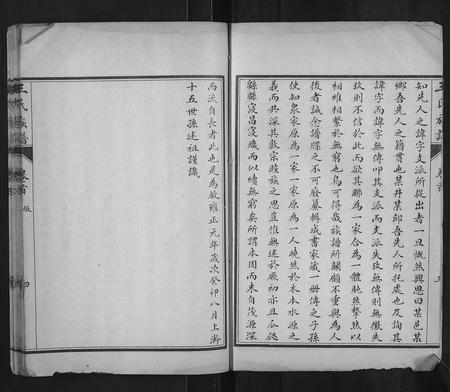 知先人之諱字支派所從出者一旦慨然興思曰某邑某
鄉吾先人之籍貫也某井某邱吾先人所托處也及詢其
諱字而諱字無傳叩其支派而支派失攷無傳則無徵失
攷則不信於此而欲其聯為一家合為一體肫然摯然以
相維相繫於無窮也烏可得哉族譜所關顧不重與為人
後者誠念譜牒之不可廢纂輯成書家藏一冊傳之子孫
使知衆家原為一家一人原為一人曉然於木本水源之
義而共深其敦宗睦族之思豈惟無迷於厥初亦且瓜瓞
緜緜寖昌寖熾而似續無窮矣所謂本固而末自茂源深
而流自長者此也是為敘雍正元年歲次癸卯八月上澣
十五世孫述祖謹識
王氏族譜
卷首
四
王氏族譜
卷首